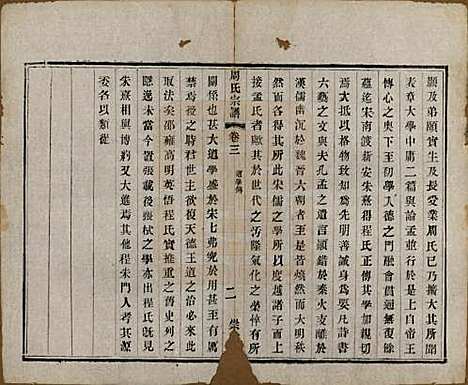 顥及弟頤實生及長受業周氏已乃擴大其所聞
表章大學中庸二篇與語孟並行於是上自帝王
傳心之奧下至初學入德之門融會貫通無復餘
蘊迄宋南渡新安朱熹得程氏正傳其學加親切
焉大抵以格物致知為先明善誠身為要凡詩書
六藝之文與夫孔孟之遺言顛錯於秦火支離於
漢儒幽沉於魏晉六朝者至是皆煥然而大明秩
然而各得其所此宋儒之學所以度越諸子而上
接孟氏者歟其於世代之汙隆氣化之榮悴有所
周氏宗譜
卷三
道學傳
二
關係也甚大道學盛於宋宋弗究於用甚至有厲
禁焉後之時君世主欲復天德王道之治必來此
取法矣邵雍高明英悟程氏實推重之舊史列之
隱逸未當今置張載後張栻之學亦出程氏既見
朱熹相與博約又大進焉其他程朱門人考其源
委各以類從